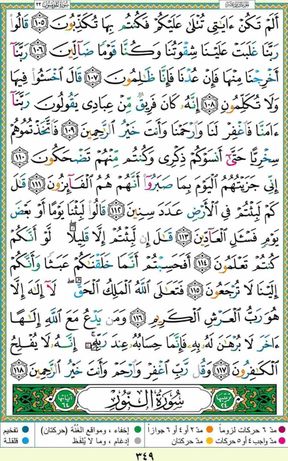 أَلَمْ تَكُنْ ءَايَٰتِى تُتْلَىٰ عَلَيْكُمْ فَكُنتُم بِهَا تُكَذِّبُونَ ١٠٥ قَالُوا۟
رَبَّنَا غَلَبَتْ عَلَيْنَا شِقْوَتُنَا وَكُنَّا قَوْمًا ضَآلِّينَ ١٠٦ رَبَّنَآ
أَخْرِجْنَا مِنْهَا فَإِنْ عُدْنَا فَإِنَّا ظَٰلِمُونَ ١٠٧ قَالَ ٱخْسَـُٔوا۟ فِيهَا
وَلَا تُكَلِّمُونِ ١٠٨ إِنَّهُۥ كَانَ فَرِيقٌ مِّنْ عِبَادِى يَقُولُونَ رَبَّنَآ
ءَامَنَّا فَٱغْفِرْ لَنَا وَٱرْحَمْنَا وَأَنتَ خَيْرُ ٱلرَّٰحِمِينَ ١٠٩ فَٱتَّخَذْتُمُوهُمْ
سِخْرِيًّا حَتَّىٰٓ أَنسَوْكُمْ ذِكْرِى وَكُنتُم مِّنْهُمْ تَضْحَكُونَ ١١٠
إِنِّى جَزَيْتُهُمُ ٱلْيَوْمَ بِمَا صَبَرُوٓا۟ أَنَّهُمْ هُمُ ٱلْفَآئِزُونَ ١١١ قَٰلَ
كَمْ لَبِثْتُمْ فِى ٱلْأَرْضِ عَدَدَ سِنِينَ ١١٢ قَالُوا۟ لَبِثْنَا يَوْمًا أَوْ بَعْضَ
يَوْمٍ فَسْـَٔلِ ٱلْعَآدِّينَ ١١٣ قَٰلَ إِن لَّبِثْتُمْ إِلَّا قَلِيلًا ۖ لَّوْ أَنَّكُمْ
كُنتُمْ تَعْلَمُونَ ١١٤ أَفَحَسِبْتُمْ أَنَّمَا خَلَقْنَٰكُمْ عَبَثًا وَأَنَّكُمْ
إِلَيْنَا لَا تُرْجَعُونَ ١١٥ فَتَعَٰلَى ٱللَّهُ ٱلْمَلِكُ ٱلْحَقُّ ۖ لَآ إِلَٰهَ إِلَّا
هُوَ رَبُّ ٱلْعَرْشِ ٱلْكَرِيمِ ١١٦ وَمَن يَدْعُ مَعَ ٱللَّهِ إِلَٰهًا
ءَاخَرَ لَا بُرْهَٰنَ لَهُۥ بِهِۦ فَإِنَّمَا حِسَابُهُۥ عِندَ رَبِّهِۦٓ ۚ إِنَّهُۥ لَا يُفْلِحُ
ٱلْكَٰفِرُونَ ١١٧ وَقُل رَّبِّ ٱغْفِرْ وَٱرْحَمْ وَأَنتَ خَيْرُ ٱلرَّٰحِمِينَ ١١٨
ترتيبها ٢٤ سُورَةُ النُّورِ آياتها ٦٤
مدّ ٦ حركات لزوماً مدّ ٢ أو ٤ أو ٦ جوازاً إخفاء، ومواقع الغُنَّة (حركتان) تفخيم
مدّ واجب ٤ أو ٥ حركات مدّ حركتان إدغام، وما لا يُلفَظ قلقلة
٣٤٩